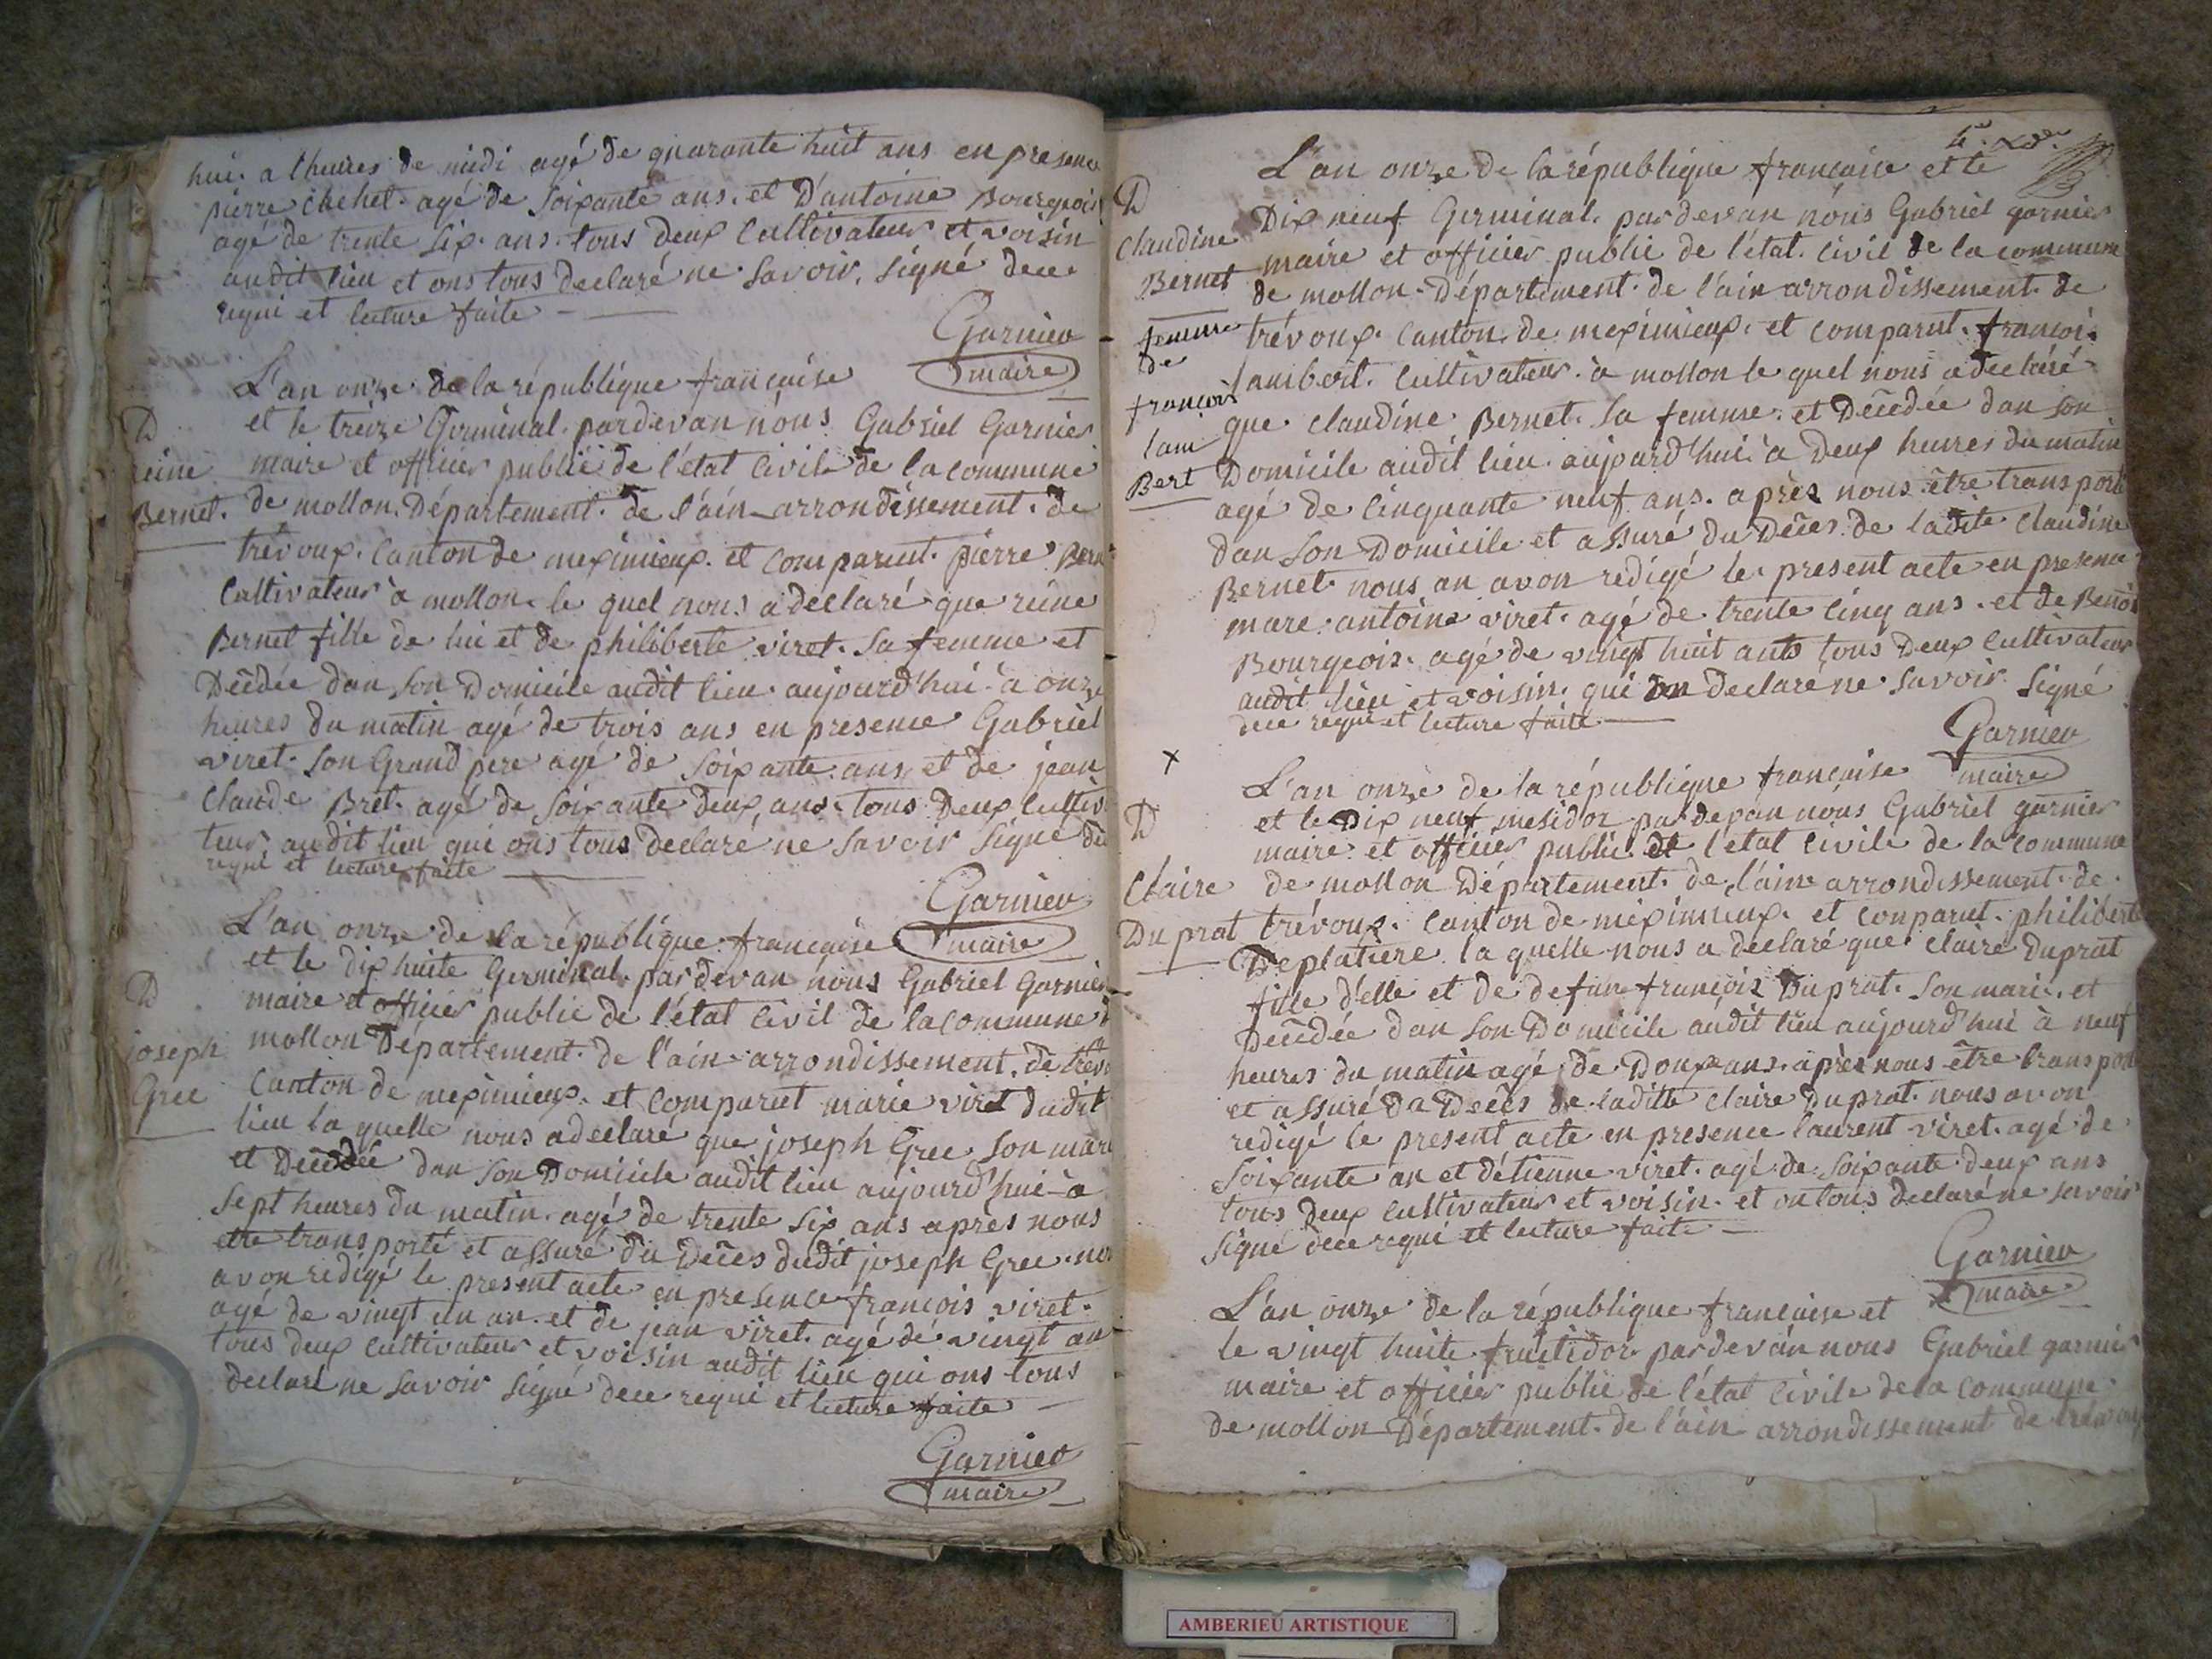 hui. a lheures de midi agé de quarante huit ans en presence
pierre chehet. agé de soixante ans. et D'antoine Bourgeois
agé de trente six. ans. tous deux Cultivateur et voisin
audit lieu et ons tous declaré ne savoir. signé dece
requi et lecture faite
Garnier
maire
L'an onze de la république française
D
et le treize Germinal. pardevan nous Gabriel Garnier
reine
maire et officier public de l'état Civile de la commune
Bernet.
de mollon. Département. de l'ain arrondissement. de
trévoux. Canton de meximieux. et comparut. pierre Bern
Cultivateur à mollon. le quel nous a declaré que reine
Bernet fille de lui et de philiberte viret. sa femme et
Décédée dan son Domicile audit lieu aujourd'hui à onze
heures du matin agé de trois ans en presence Gabriel
viret. son Grand pere agé de soixante ans et de jean
Claude Bret. agé de soixante deux ans tous Deux Cultiv
teur audit lieu qui ons tous declaré ne savoir signé de
requi et lecture faite
Garnier
maire
L'an onze de la république française
et le dix huite Germinal. pardevan nous Gabriel Garnier
D
maire et officier public de l'état Civil de la Commune
joseph
mollon Département. de l'ain arrondissement. de trévo
Gree
Canton de meximieux. et comparut marie viret dudit
lieu la quelle nous a declaré que joseph Gree son mari
et Décédée dan son Domicile audit lieu aujourd'hui à
sept heures du matin. agé de trente six ans après nous
etre transporté et assuré du Décés dudit joseph Gree. no
avon redigé le present acte en presence françois viret.
agé de vingt un an. et de jean viret. agé de vingt an
tous deux Cultivateur et voisin audit lieu qui ons tous
declaré ne savoir signé dece requi et lecture faite
Garnier
maire
L'an onze de la république française et le
D
Dix neuf Germinal. pardevan nous Gabriel garnier
Claudine
maire et officier public de l'état. Civil de la commune
Bernet
de mollon. Département. de l'ain arrondissement. de
femme
trévoux. Canton. de meximieux. et comparut. françoi.
de
lambert. Cultivateur. à mollon le quel nous a declaré
françois
que. Claudine Bernet. sa femme. et Décédée dan son
lam
Domicile audit lieu. aujourd'hui à Deux heures du matin
Bert
agé de Cinquante neuf ans. après nous être transporté
dan son Domicile et assuré du Décés. de ladite Claudine
Bernet. nous an avon redigé le present acte en presence
marc. antoine viret. agé de trente Cinq ans. et de Benoi
Bourgeois. agé de vingt huit ants tous Deux Cultivateur
audit lieu et voisin. qui on declare ne savoir signé
dece requi et lecture faite
Garnier
maire
L'an onze de la république française
D
et le Dix neuf mesidor pardevan nous Gabriel garnier
maire et officier public de l'état Civile de la commune
Claire
de mollon Département. de l'ain arrondissement. de
Duprat
trévoux. Canton de meximieux. et conparut. philiberte
Deplatiere la quelle nous a declaré que Claire Duprat
fille d'elle et de defun françois Duprat. son mari. et
Décédée dan son Domicile audit lieu aujourd'hui à neuf
heures du matin agé de Douze ans. après nous être transpor
et assuré da Décés de ladite Claire Duprat. nous avon
redigé le present acte en presence laurent viret. agé de
soixante an et détienne viret. agé de soixante deux ans
tous deux Cultivateur et voisin. et on tous declaré ne savoir
signé dece requi et lecture faite
Garnier
maire
L'an onze de la république française et
le vingt huite fructidor pardevan nous Gabriel garnier
maire et officier public de l'état Civile de la commune
de mollon Département. de l'ain arrondissement de trévoux
AMBERIEU ARTISTIQUE